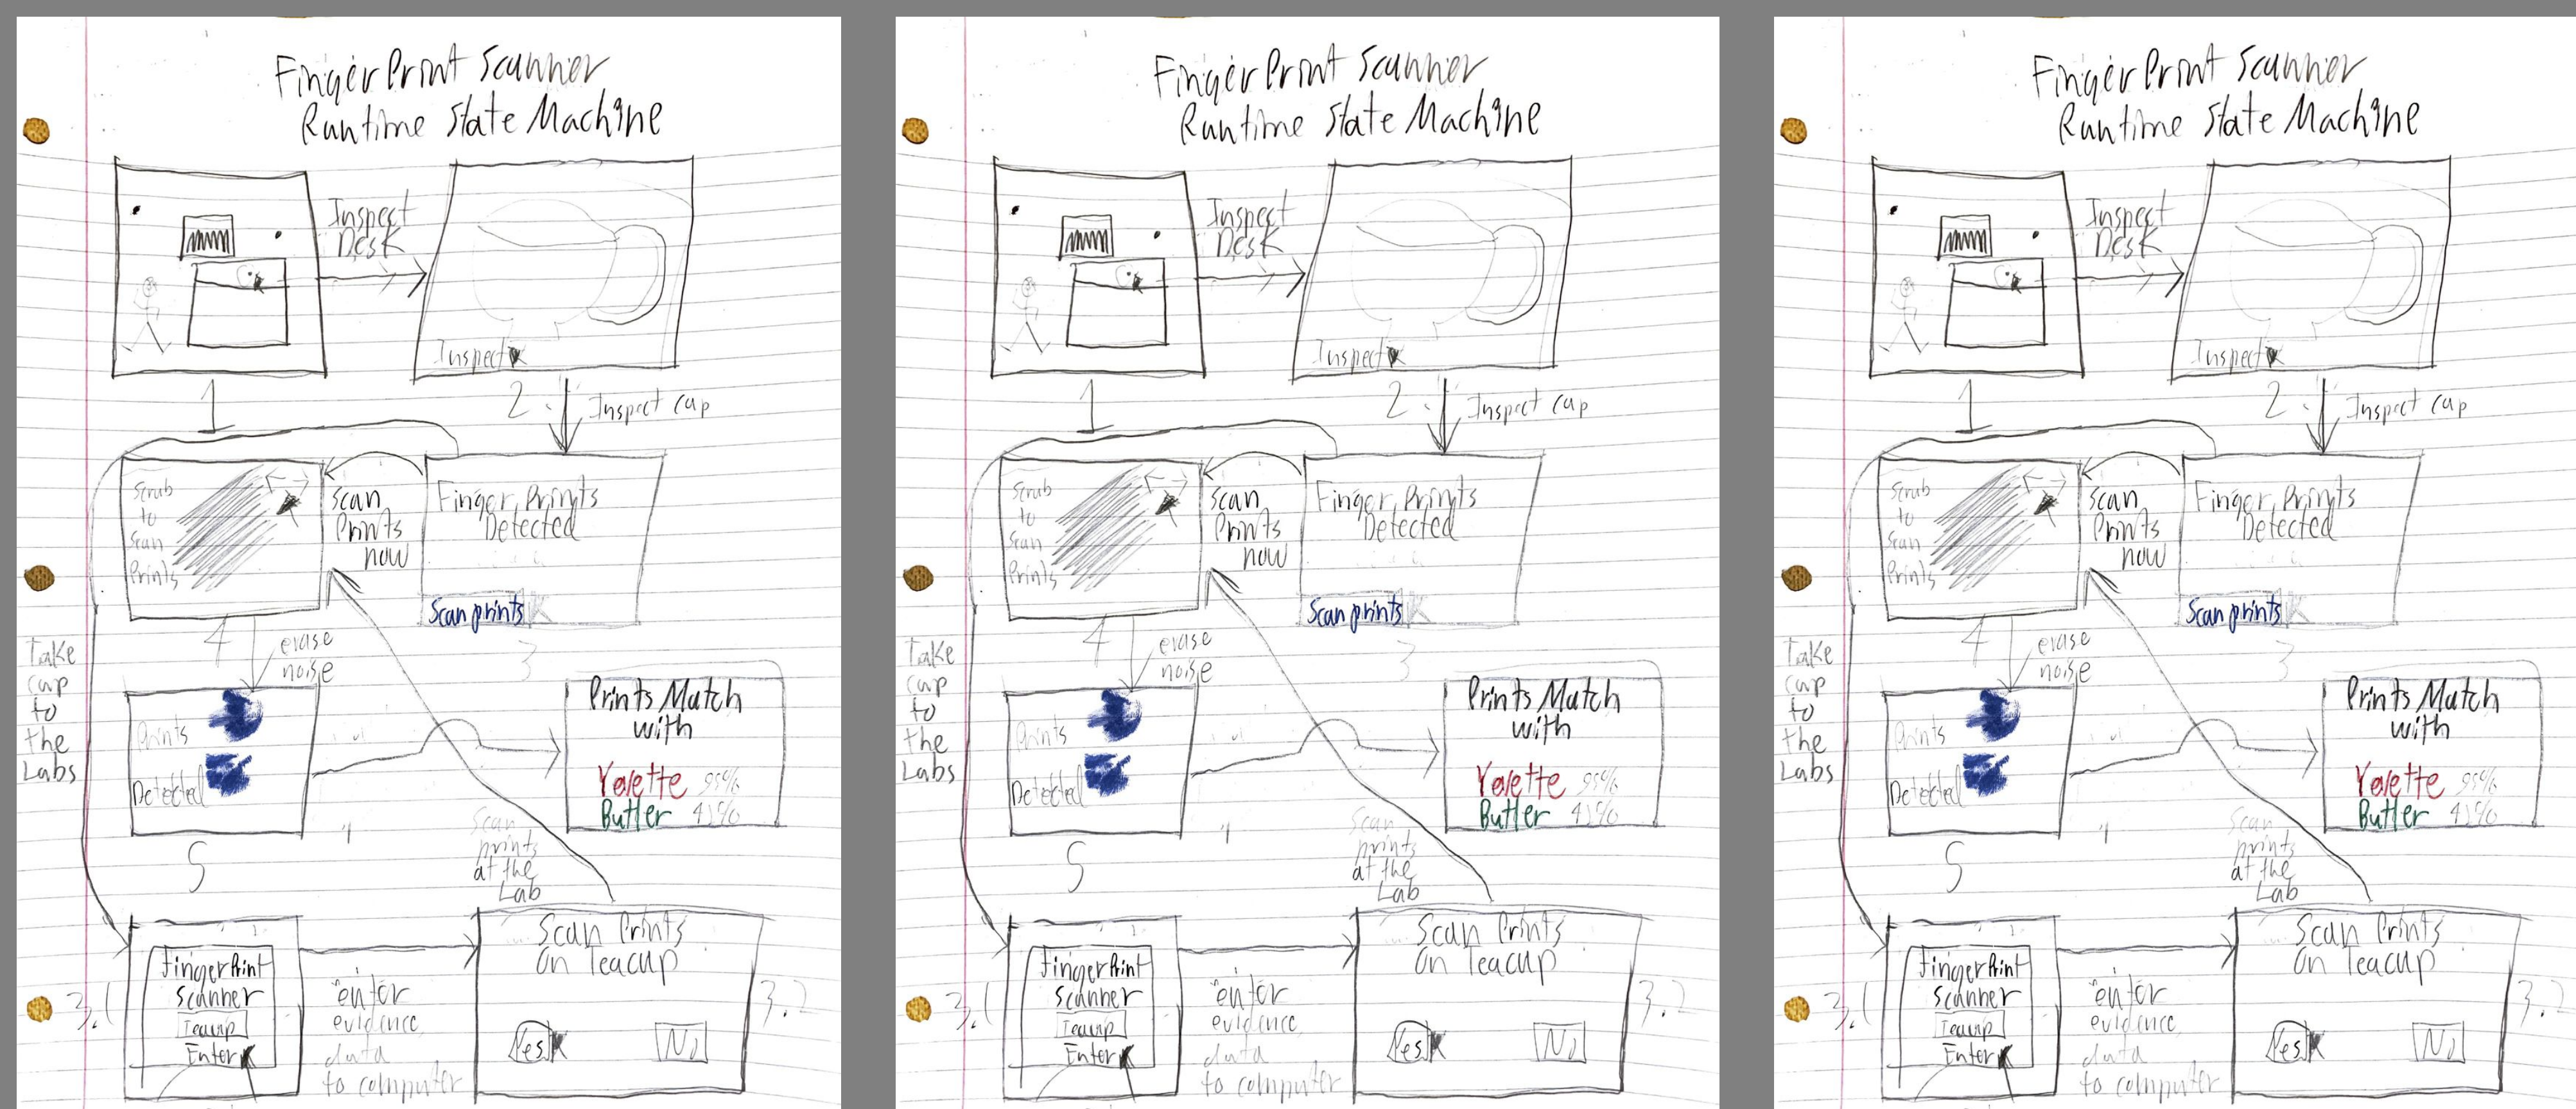 FingerPrint Scanner
Runtime State Machine
Inspect
Desk
Inspect
1
2
Inspect cup
Scrub
to
Scan
Prints
Scan
Prints
now
Finger Prints
Detected
Scan prints
4
erase
noise
3
Take
cup
to
the
Labs
Prints
Detected
5
Prints Match
with
Butler
Scan
prints
at the
Lab
3.1
FingerPrint
Scanner
Teacup
Enter
enter
evidence
data
to computer
Scan Prints
On Teacup
Yes
No
3.2
FingerPrint Scanner
Runtime State Machine
Inspect
Desk
Inspect
1
2
Inspect cup
Scrub
to
Scan
Prints
Scan
Prints
now
Finger Prints
Detected
Scan prints
4
erase
noise
3
Take
cup
to
the
Labs
Prints
Detected
5
Prints Match
with
Butler
Scan
prints
at the
Lab
3.1
FingerPrint
Scanner
Teacup
Enter
enter
evidence
data
to computer
Scan Prints
On Teacup
Yes
No
3.2
FingerPrint Scanner
Runtime State Machine
Inspect
Desk
Inspect
1
2
Inspect cup
Scrub
to
Scan
Prints
Scan
Prints
now
Finger Prints
Detected
Scan prints
4
erase
noise
3
Take
cup
to
the
Labs
Prints
Detected
5
Prints Match
with
Butler
Scan
prints
at the
Lab
3.1
FingerPrint
Scanner
Teacup
Enter
enter
evidence
data
to computer
Scan Prints
On Teacup
Yes
No
3.2